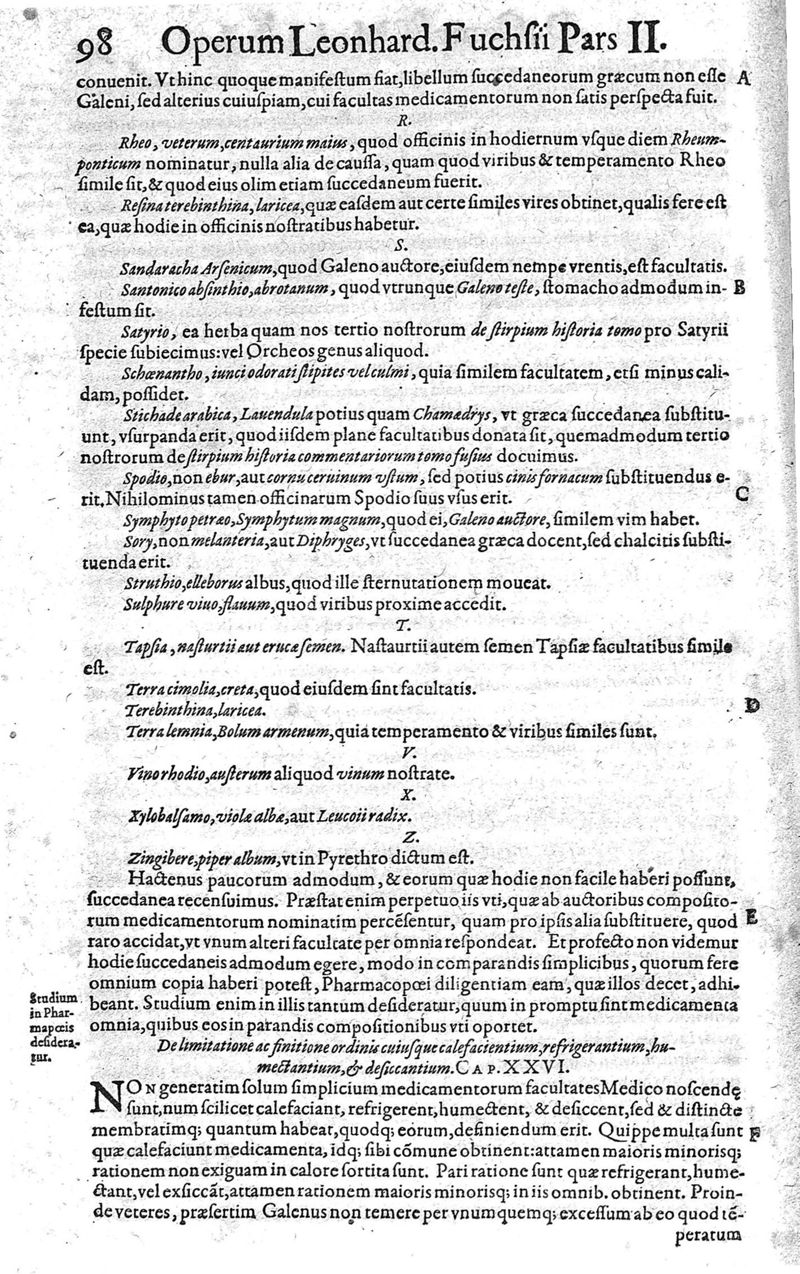 98 Operum Leonhard. Fuchſii Pars II.
conuenit. Vt hinc quoque manifeſtum fiat, libellum ſuccedaneorum græcum non eſſe A
Galeni, ſed alterius cuiuſpiam, cui facultas medicamentorum non ſatis perſpecta fuit.
R.
Rheo, veterum, centaurium maius, quod officinis in hodiernum vſque diem Rheum-
ponticum nominatur, nulla alia de cauſſa, quam quod viribus & temperamento Rheo
ſimile ſit, & quod eius olim etiam ſuccedaneum fuerit.
Reſina terebinthina, laricea, quæ eaſdem aut certe ſimiles vires obtinet, qualis fere eſt
ea, quæ hodie in officinis noſtratibus habetur.
S.
Sandaracha Arſenicum, quod Galeno auctore, eiuſdem nempe vrentis, eſt facultatis.
Santonico abſinthio, abrotanum, quod vtrunque Galeno teſte, ſtomacho admodum in- B
feſtum ſit.
Satyrio, ea herba quam nos tertio noſtrorum de ſtirpium hiſtoria tomo pro Satyrii
ſpecie ſubiecimus: vel Orcheos genus aliquod.
Schœnantho, iunci odorati ſtipites vel culmi, quia ſimilem facultatem, etſi minus cali-
dam, poſſidet.
Stichade arabica, Lauendula potius quam Chamædrys, vt græca ſuccedanea ſubſtitu-
unt, vſurpanda erit, quod iiſdem plane facultatibus donata ſit, quemadmodum tertio
noſtrorum de ſtirpium hiſtoria commentariorum tomo fuſius docuimus.
Spodio, non ebur, aut cornu ceruinum vſtum, ſed potius cinis fornacum ſubſtituendus e-
rit, Nihilominus tamen officinarum Spodio ſuus vſus erit. C
Symphyto petræo, Symphytum magnum, quod ei, Galeno auctore, ſimilem vim habet.
Sory, non melanteria, aut Diphryges, vt ſuccedanea græca docent, ſed chalcitis ſubſti-
tuenda erit.
Struthio, elleborus albus, quod ille ſternutationem moueat.
Sulphure viuo, flauum, quod viribus proxime accedit.
T.
Tapſia, naſturtii aut erucæ ſemen. Naſtaurtii autem ſemen Tapſiæ facultatibus ſimile
eſt.
Terra cimolia, creta, quod eiuſdem ſint facultatis.
Terebinthina, laricea. D
Terra lemnia, Bolum armenum, quia temperamento & viribus ſimiles ſunt.
V.
Vino rhodio, auſterum aliquod vinum noſtrate.
X.
Xylobalſamo, violæ albæ, aut Leucoii radix.
Z.
Zingibere, piper album, vt in Pyrethro dictum eſt.
Hactenus paucorum admodum, & eorum quæ hodie non facile haberi poſſunt,
ſuccedanea recenſuimus. Præſtat enim perpetuo iis vti, quæ ab auctoribus compoſito-
rum medicamentorum nominatim percēſentur, quam pro ipſis alia ſubſtituere, quod E
raro accidat, vt vnum alteri facultate per omnia reſpondeat. Et profecto non videmur
hodie ſuccedaneis admodum egere, modo in comparandis ſimplicibus, quorum fere
omnium copia haberi poteſt, Pharmacopœi diligentiam eam, quæ illos decet, adhi-
beant. Studium enim in illis tantum deſideratur, quum in promptu ſint medicamenta
omnia, quibus eos in parandis compoſitionibus vti oportet.
Studium
in Phar-
mapœis
deſidera-
tur.
De limitatione ac finitione ordinis cuiuſque calefacientium, refrigerantium, hu-
mectantium, & deſiccantium. CAP. XXVI.
NON generatim ſolum ſimplicium medicamentorum facultates Medico noſcendę
ſunt, num ſcilicet calefaciant, refrigerent, humectent, & deſiccent, ſed & diſtincte
membratimq; quantum habeat, quodq; eorum, definiendum erit. Quippe multa ſunt F
quæ calefaciunt medicamenta, idq; ſibi cōmune obtinent: attamen maioris minorisq;
rationem non exiguam in calore ſortita ſunt. Pari ratione ſunt quæ refrigerant, hume-
ctant, vel exſiccāt, attamen rationem maioris minorisq; in iis omnib. obtinent. Proin-
de veteres, præſertim Galenus non temere per vnumquemq; exceſſum ab eo quod tē-
peratum